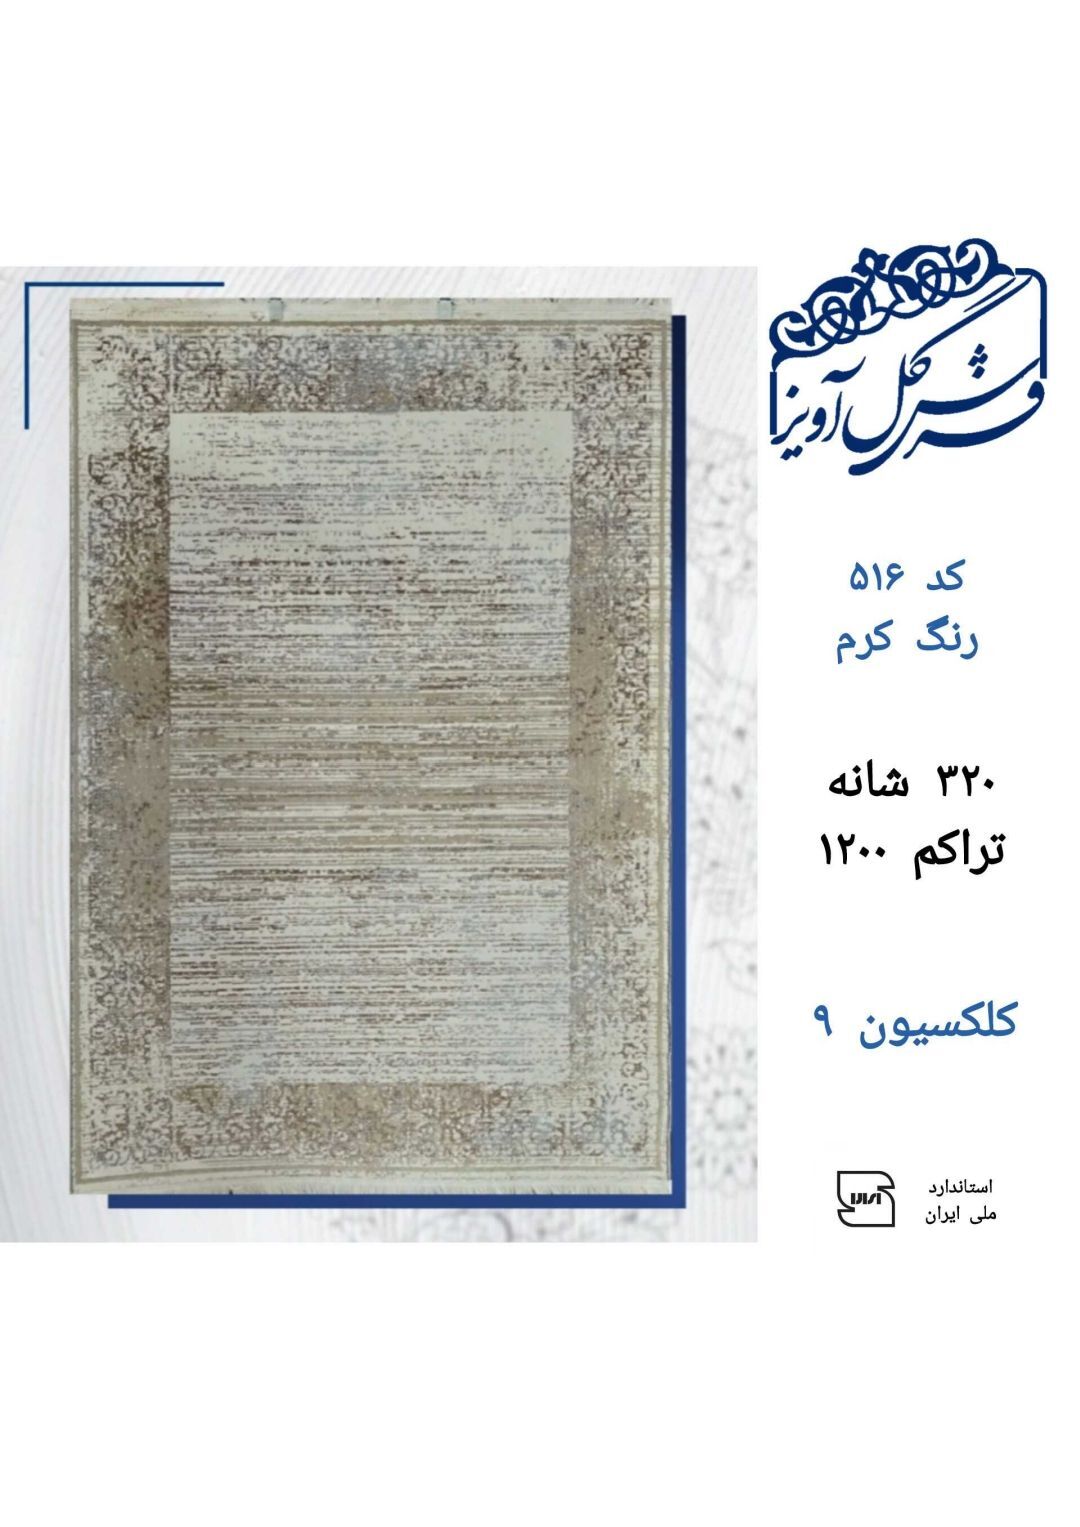 فرش گل آویز
کد ۵۱۶
رنگ کرم
۳۲۰ شانه
تراکم ۱۲۰۰
کلکسیون ۹
استاندارد
ملی ایران